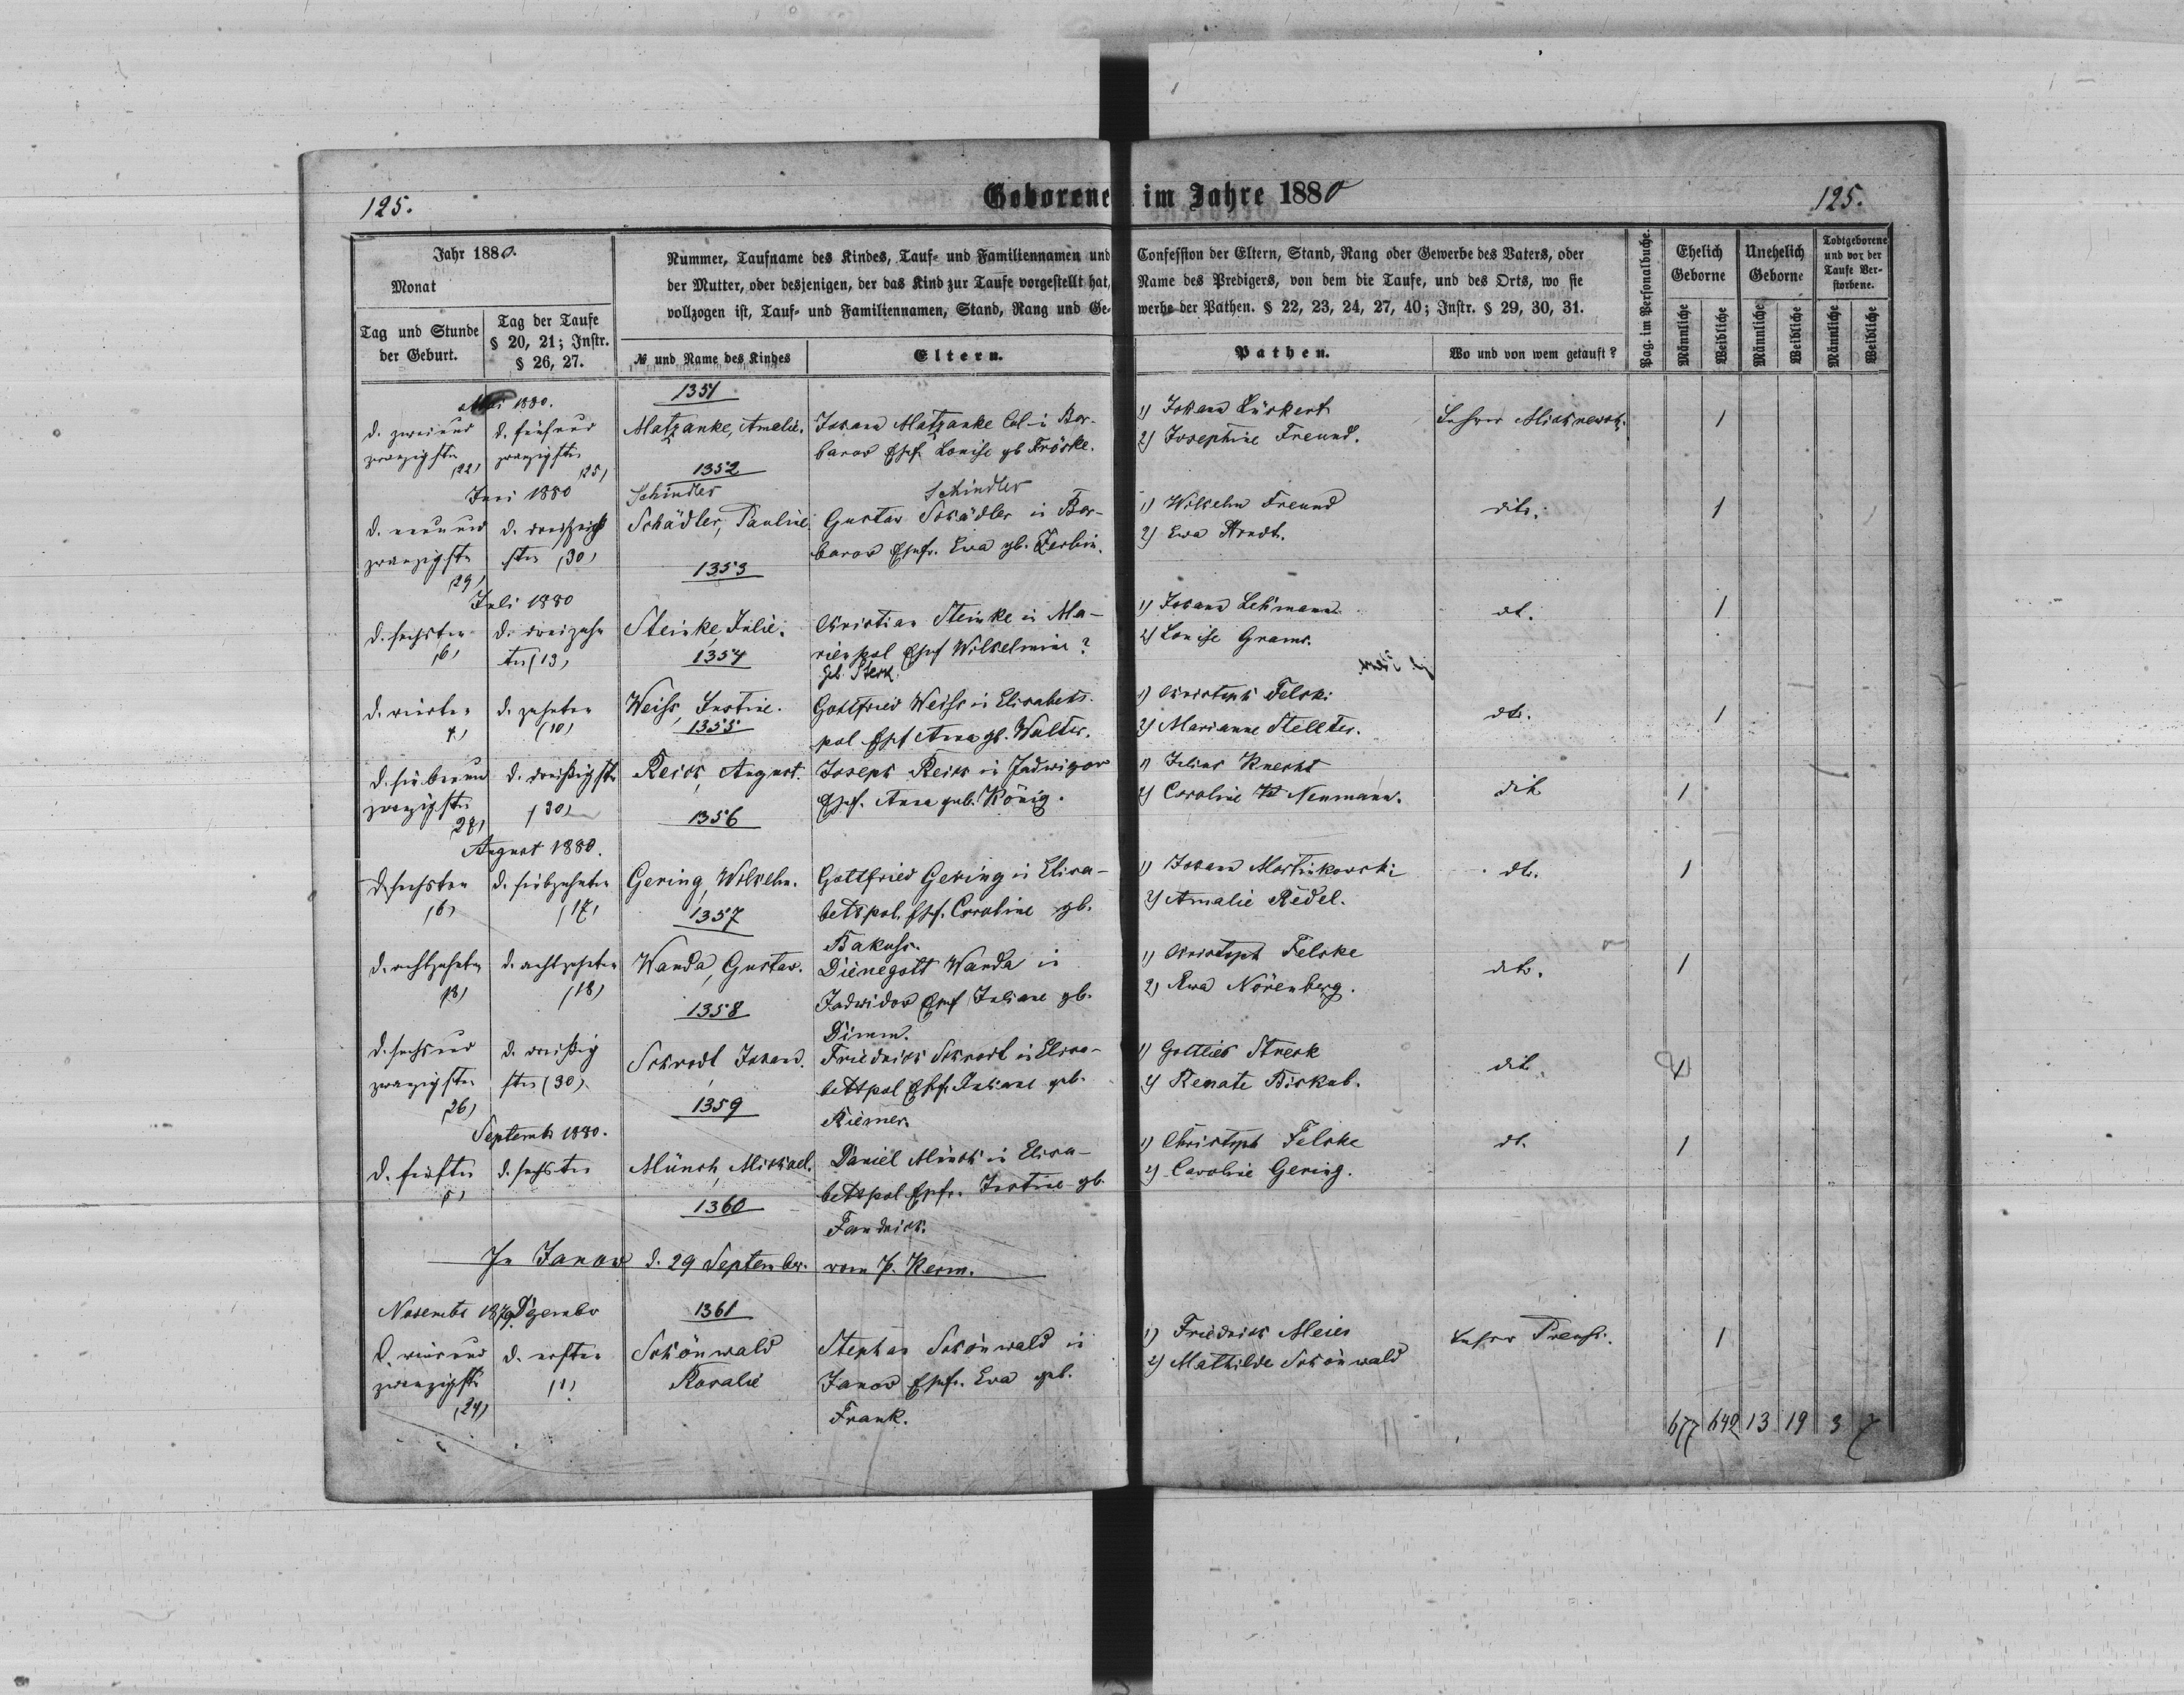 125.
Geborene im Jahre 1880
125.
Jahr 1880.
Monat
Tag und Stunde der Geburt.
Tag der Taufe § 20, 21; Instr. § 26, 27.
Nummer, Taufname des Kindes, Tauf- und Familiennamen und
der Mutter, oder desjenigen, der das Kind zur Taufe vorgestellt hat,
vollzogen ist, Tauf- und Familiennamen, Stand, Rang und Ge-
№ und Name des Kindes
Eltern.
Confession der Eltern, Stand, Rang oder Gewerbe des Vaters, oder
Name des Predigers, von dem die Taufe, und des Orts, wo sie
werbe der Pathen. § 22, 23, 24, 27, 40; Instr. § 29, 30, 31.
Pathen.
Wo und von wem getauft?
Pag. im Personalbuche.
Ehelich Geborne
Unehelich Geborne
Todtgeborene und vor der Taufe Verstorbene.
Männliche
Weibliche
Männliche
Weibliche
Männliche
Weibliche
Mai 1880.
1351
d. zweiund
zwanzigsten
(22)
d. fünfund
zwanzigsten
(25)
Matzanke, Amalie.
Johann Matzanke Col in Bar-
barow Ehef. Louise gb Fröske.
1) Johann Lückert
2) Josephine Freund.
Lehrer
1
1352
Juni 1880
d. neunund
zwanzigsten
29)
d. dreißig
sten (30)
Schindler
Schädler, Pauline
Schindler
Gustav Schädler in Bar-
barow Ehefr. Ewa gb. Zerbin.
1) Wilhelm Freund
2) Ewa Arndt.
dito.
1
1353
Juli 1880
d. sechsten
(6)
d. dreizehn
ten (13)
Steinke, Julie.
Christian Steinke in Ma-
rienpol Ehef Wilhelmine ?
geb. Sterk
1) Johann Lehmann
2) Louise Grams.
dt.
1
1354
d. vierten
4)
d. zehnten
(10)
Weiss, Justine.
Gottfried Weiss in Elisabeth-
pol Ehef Anna gb. Walter.
1) Christoph Felski
2) Marianne Stellter.
dto.
1
1355
d. siebenund
zwanzigsten
27)
d. dreißigsten
(30)
Reich, August.
Joseph Reich in Jadwigow
Ehef. Anna geb. König.
1) Julius Knecht
2) Caroline Neumann.
dito
1
1356
August 1880.
d. sechsten
(6)
d. siebzehnten
(17)
Gering, Wilhelm.
Gottfried Gering in Elisa-
bethpol. Ehf. Caroline gb.
Bakuss.
1) Johann Martinkowski
2) Amalie Redel.
dt.
1
1357
d. achtzehnten
18)
d. achtzehnten
(18)
Wanda, Gustav.
Dienegott Wanda in
Jadwidow Ehef Juliane gb.
Dimm.
1) Christoph Felske
2) Ewa Nörenberg.
dto.
1
1358
d. sechsund
zwanzigsten
26)
d. dreißig
sten (30)
Schrodt Johann.
Friedrich Schrodt in Elisa-
bethpol Ehf. Juliane geb.
Riemer.
1) Gottlieb Streck
2) Renate Biskub.
dito.
1
1359
September 1880.
d. fünften
5)
d. sechsten
Münch, Michael.
Daniel Münch in Elisa-
bethpol Ehefr. Justine gb.
Fandrich.
1) Christoph Felske
2) Caroline Gering.
dt.
1
1360
In Janow d. 29 September. vom P. Kerm.
November 1879 Dezember
1361
d. vierund
zwanzigsten
(24)
d. ersten
(1)
Schönwald
Rosalie
Stephan Schönwald in
Janow Ehefr. Eva geb.
Frank.
1) Friedrich Meier
2) Mathilde Schönwald
Lehrer Preuss.
1
677 642 13 19 3 7